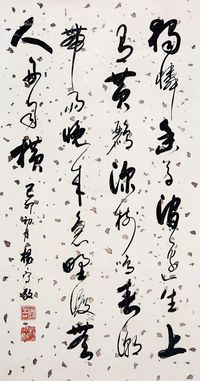 獨憐幽草澗邊生上
有黃鸝深樹鳴春潮
帶雨晚來急野渡無
人舟自橫 己卯 月 楊